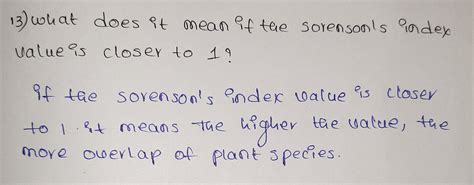 13) what does it mean if the sorenson's index
value is closer to 1?
if the sorenson's index value is closer
to 1. it means the higher the value, the
more overlap of plant species.